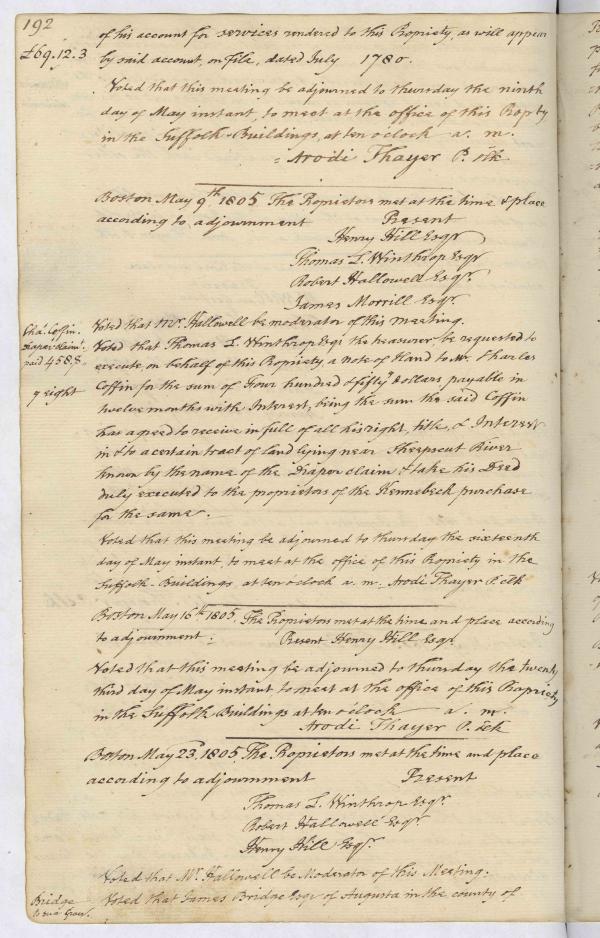 192
of his account for services rendered to this Propriety, as will appear
£69.12.3 by said account, on file, dated July 1780.
Voted that this meeting be adjourned to thursday the ninth
day of May instant, to meet at the office of this Propty
in the Suffolk-Buildings, at ten o'clock a. m.
Arodi Thayer P. Clk
Boston May 9th 1805 The Propietors met at the time & place
according to adjournment Present
Henry Hill Esqr
Thomas L. Winthrop Esqr
Robert Hallowell Esqr.
James Morrill Esqr.
Voted that Mr. Hallowell be moderator of this meeting.
Cha. Coffin
Diaper claim
paid 458.8
right
Voted that Thomas L. Winthrop Esqr the treasurer be requested to
execute on behalf of this Propriety a note of Hand to Mr. Charles
Coffin for the sum of Four hundred & fifty dollars payable in
twelve months with Interest, being the sum the said Coffin
has agreed to receive in full of all his right, title, & Interest
in & to a certain tract of land lying near Sheepscut River
known by the name of the Diaper claim & take his Deed
duly executed to the proprietors of the Kennebeck purchase
for the same.
Voted that this meeting be adjourned to thursday the sixteenth
day of May instant, to meet at the office of this Propriety in the
Suffolk-Buildings at ten o'clock a. m. Arodi Thayer P. Clk
Boston May 16th 1805. The Propietors met at the time and place according
to adjournment: Present Henry Hill Esqr
Voted that this meeting be adjourned to thursday the twenty
third day of May instant to meet at the office of this Propriety
in the Suffolk Buildings at ten o'clock a. m.
Arodi Thayer P. Clk
Boston May 23, 1805. The Propietors met at the time and place
according to adjournment Present
Thomas L. Winthrop Esqr.
Robert Hallowell Esqr.
Henry Hill Esqr.
Voted that Mr. Hallowell be Moderator of this Meeting.
Bridge
Voted that James Bridge Esqr of Augusta in the county of